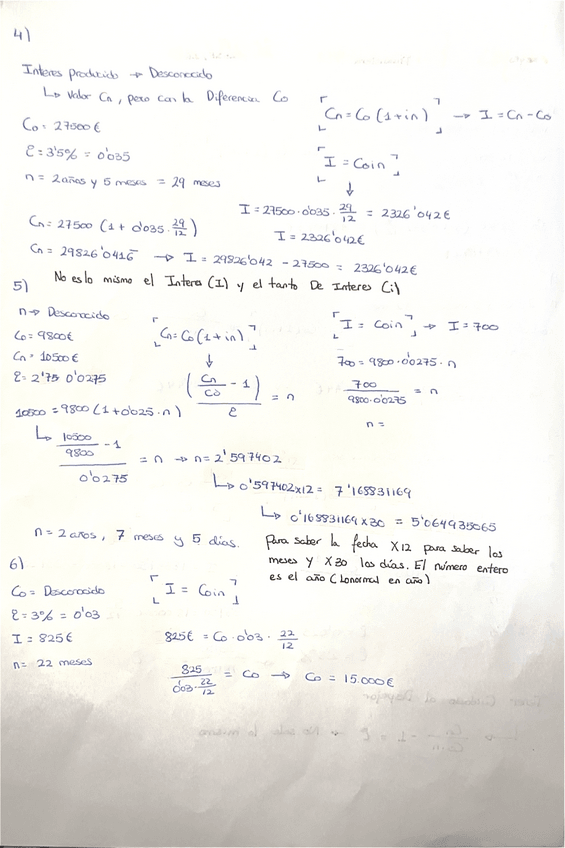 4)
Interes producido → Desconocido
↳ Valor Cn, pero con la Diferencia Co
Co = 27500€
i = 3'5% = 0'035
n = 2 años y 5 meses = 29 meses
Cn = Co (1+in) → I = Cn - Co
I = Coin
↓
I = 27500 · 0'035 · 29/12 = 2326'042€
I = 2326'042€
Cn = 27500 (1 + 0'035 · 29/12)
Cn = 29826'0416 → I = 29826'042 - 27500 = 2326'042€
No es lo mismo el Interes (I) y el tanto De Interes (i)
5)
n → Desconocido
Co = 9800€
Cn = 10500€
i = 2'75 0'0275
10500 = 9800 (1+0'025 · n)
Cn = Co (1+in)
↓
(Cn/Co - 1)/i = n
I = Coin → I = 700
700 = 9800 · 0'0275 · n
700/9800·0'0275 = n
n =
↳ (10500/9800 - 1)/0'0275 = n → n = 2'597402
↳ 0'597402 x12 = 7'168831169
↳ 0'168831169 x 30 = 5'064935065
n = 2 años, 7 meses y 5 días.
Para saber la fecha X12 para saber los
meses y X30 los días. El número entero
es el año (Lo normal en año)
6)
Co = Desconocido
i = 3% = 0'03
I = 825€
n = 22 meses
I = Coin
825€ = Co · 0'03 · 22/12
825/(0'03 · 22/12) = Co → Co = 15.000€